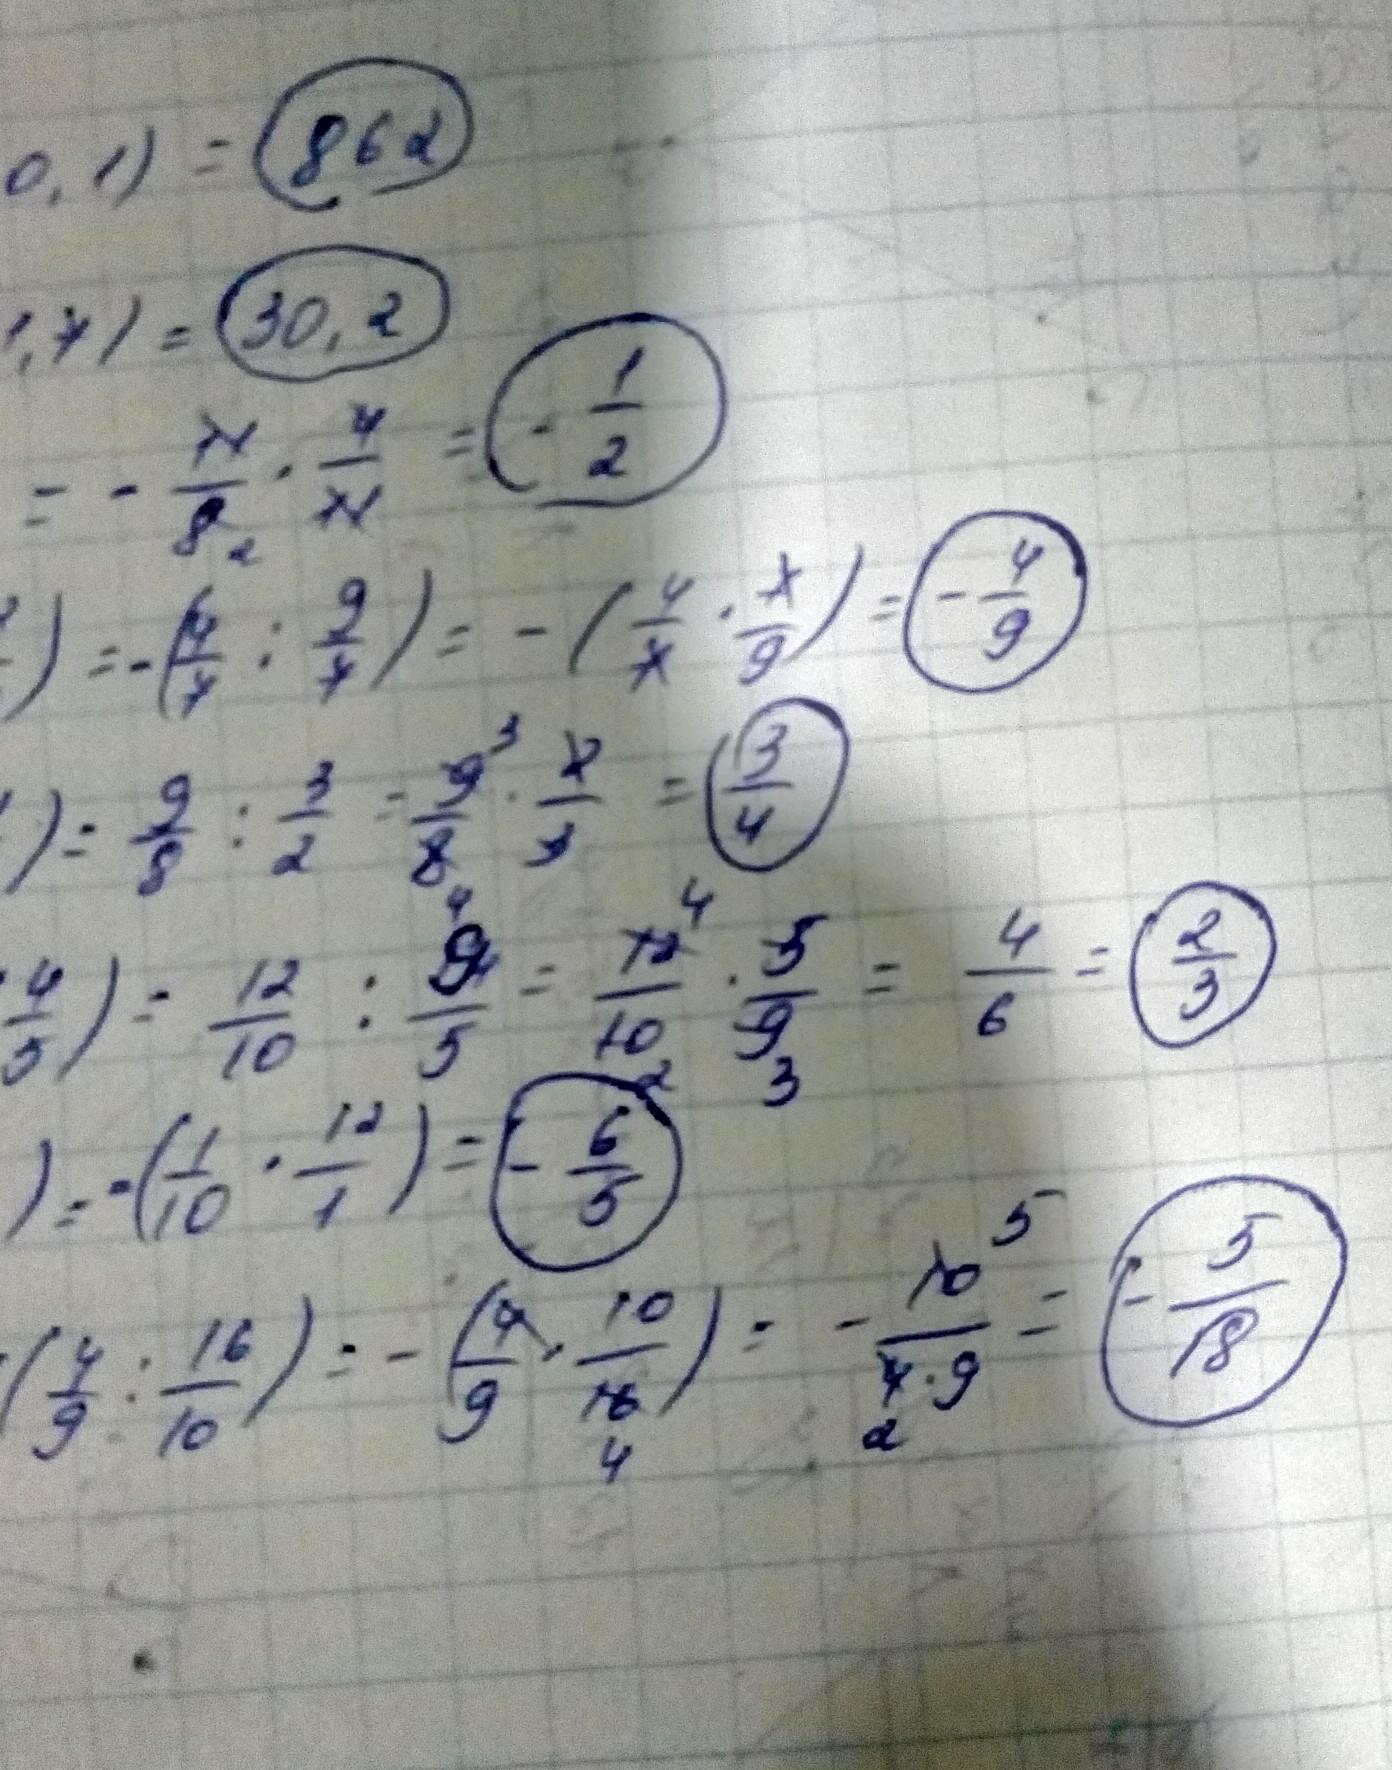 0,1) = 862
1,7) = 30,2
= - 11/8 2 · 4/11 = - 1/2
) = -(4/7 : 9/7) = -(4/7 · 7/9) = - 4/9
) = 9/8 : 3/2 = 9 3/8 4 · 2/3 = 3/4
4/5) = 12/10 : 9/5 = 12 4/10 2 · 5/9 3 = 4/6 = 2/3
) = -(1/10 · 12/1) = - 6/5
(4/9 : 16/10) = -(4/9 · 10/16 4) = - 10 5/4 2 · 9 = - 5/18